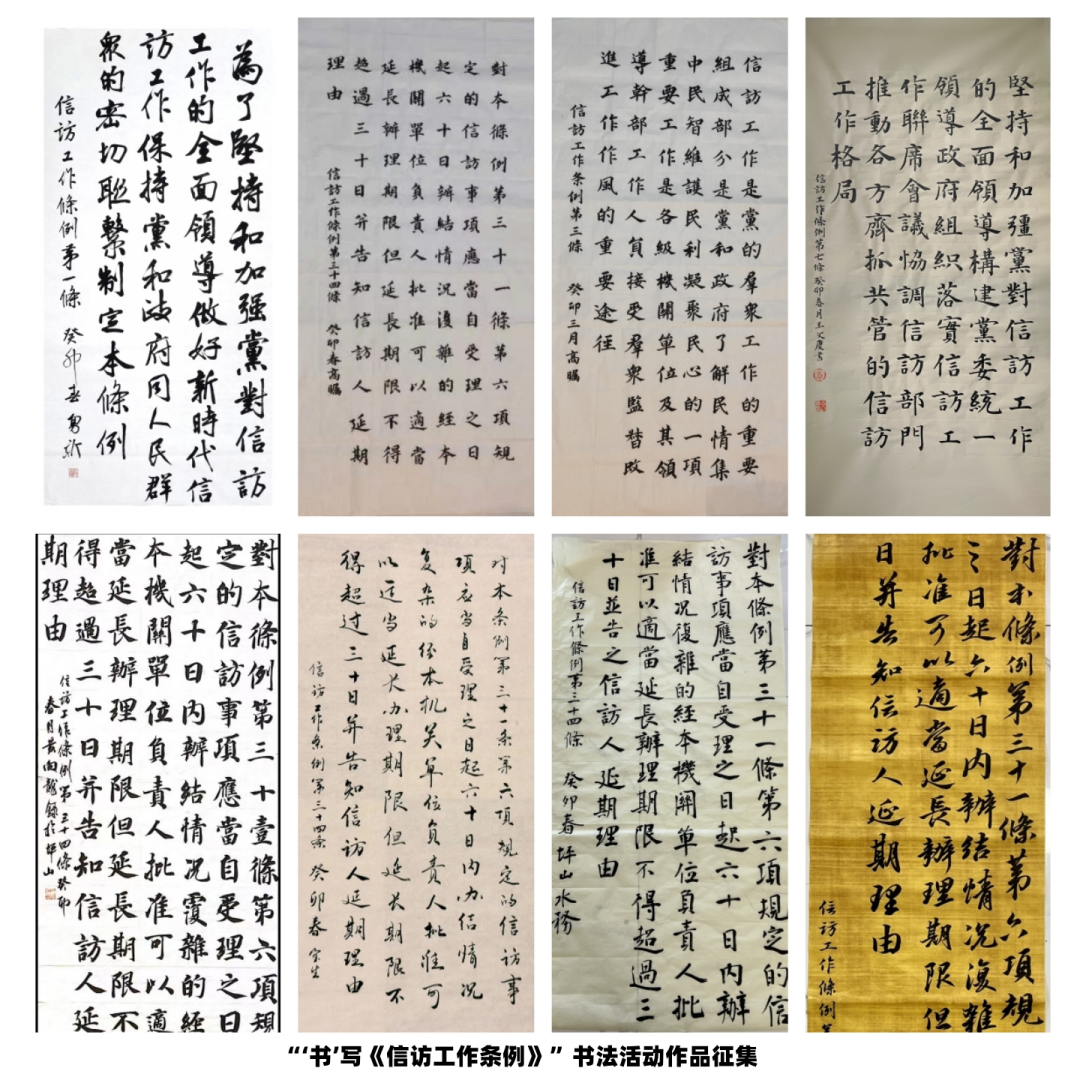 為了堅持和加强黨對信訪
工作的全面領導做好新時代信
訪工作保持黨和政府同人民群
衆的密切聯繫制定本條例
信訪工作條例第一條 癸卯春
對本條例第三十一條第六項規
定的信訪事項應當自受理之日
起六十日辦結情况復雜的經本
機關單位負責人批准可以適當
延長辦理期限但延長期限不得
超過三十日并告知信訪人延期
理由
信訪工作條例第三十四條 癸卯春高瞩
信訪工作是黨的羣衆工作的重要
組成部分是黨和政府了解民情集
中民智維護民利凝聚民心的一項
重要工作是各級機關單位及其領
導幹部工作人員接受羣衆監督改
進工作作風的重要途徑
信訪工作條例第三條 癸卯三月高瞩
堅持和加彊黨對信訪工作
的全面領導構建黨委統一
領導政府組織落實信訪工
作聯席會議恊調信訪部門
推動各方齊抓共管的信訪
工作格局
信訪工作條例第七條 癸卯春月王文慶書
對本條例第三十壹條第六項規
定的信訪事項應當自受理之日
起六十日内辦結情况複雜的經
本機關單位負責人批准可以適
當延長辦理期限但延長期限不
得超過三十日并告知信訪人延
期理由
信訪工作條例第三十四條癸卯
春月黄向龍錄於坪山
对本条例第三十一条第六项规定的信访事
项应当自受理之日起六十日内办结情况
复杂的经本机关单位负责人批准可
以适当延长办理期限但延长期限不
得超过三十日并告知信访人延期理由
信访工作条例第三十四条 癸卯春 宗生
對本條例第三十一條第六項規定的信
訪事項應當自受理之日起六十日内辦
結情况復雜的經本機關單位負責人批
准可以適當延長辦理期限不得超過三
十日並告之信訪人延期理由
信訪工作條例第三十四條 癸卯春 坪山水務
對本條例第三十一條第六項規
之日起六十日内辦结情况復雜
批准可以適當延長辦理期限但
日并告知信訪人延期理由
信訪工作條例第
“‘书’写《信访工作条例》”书法活动作品征集